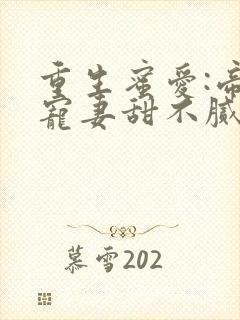 重生蜜愛:帝
寵妻甜不膩
慕雪202